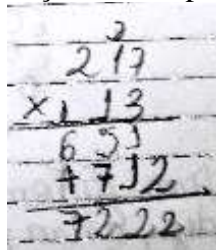 2
217
×113
651
7712
7222